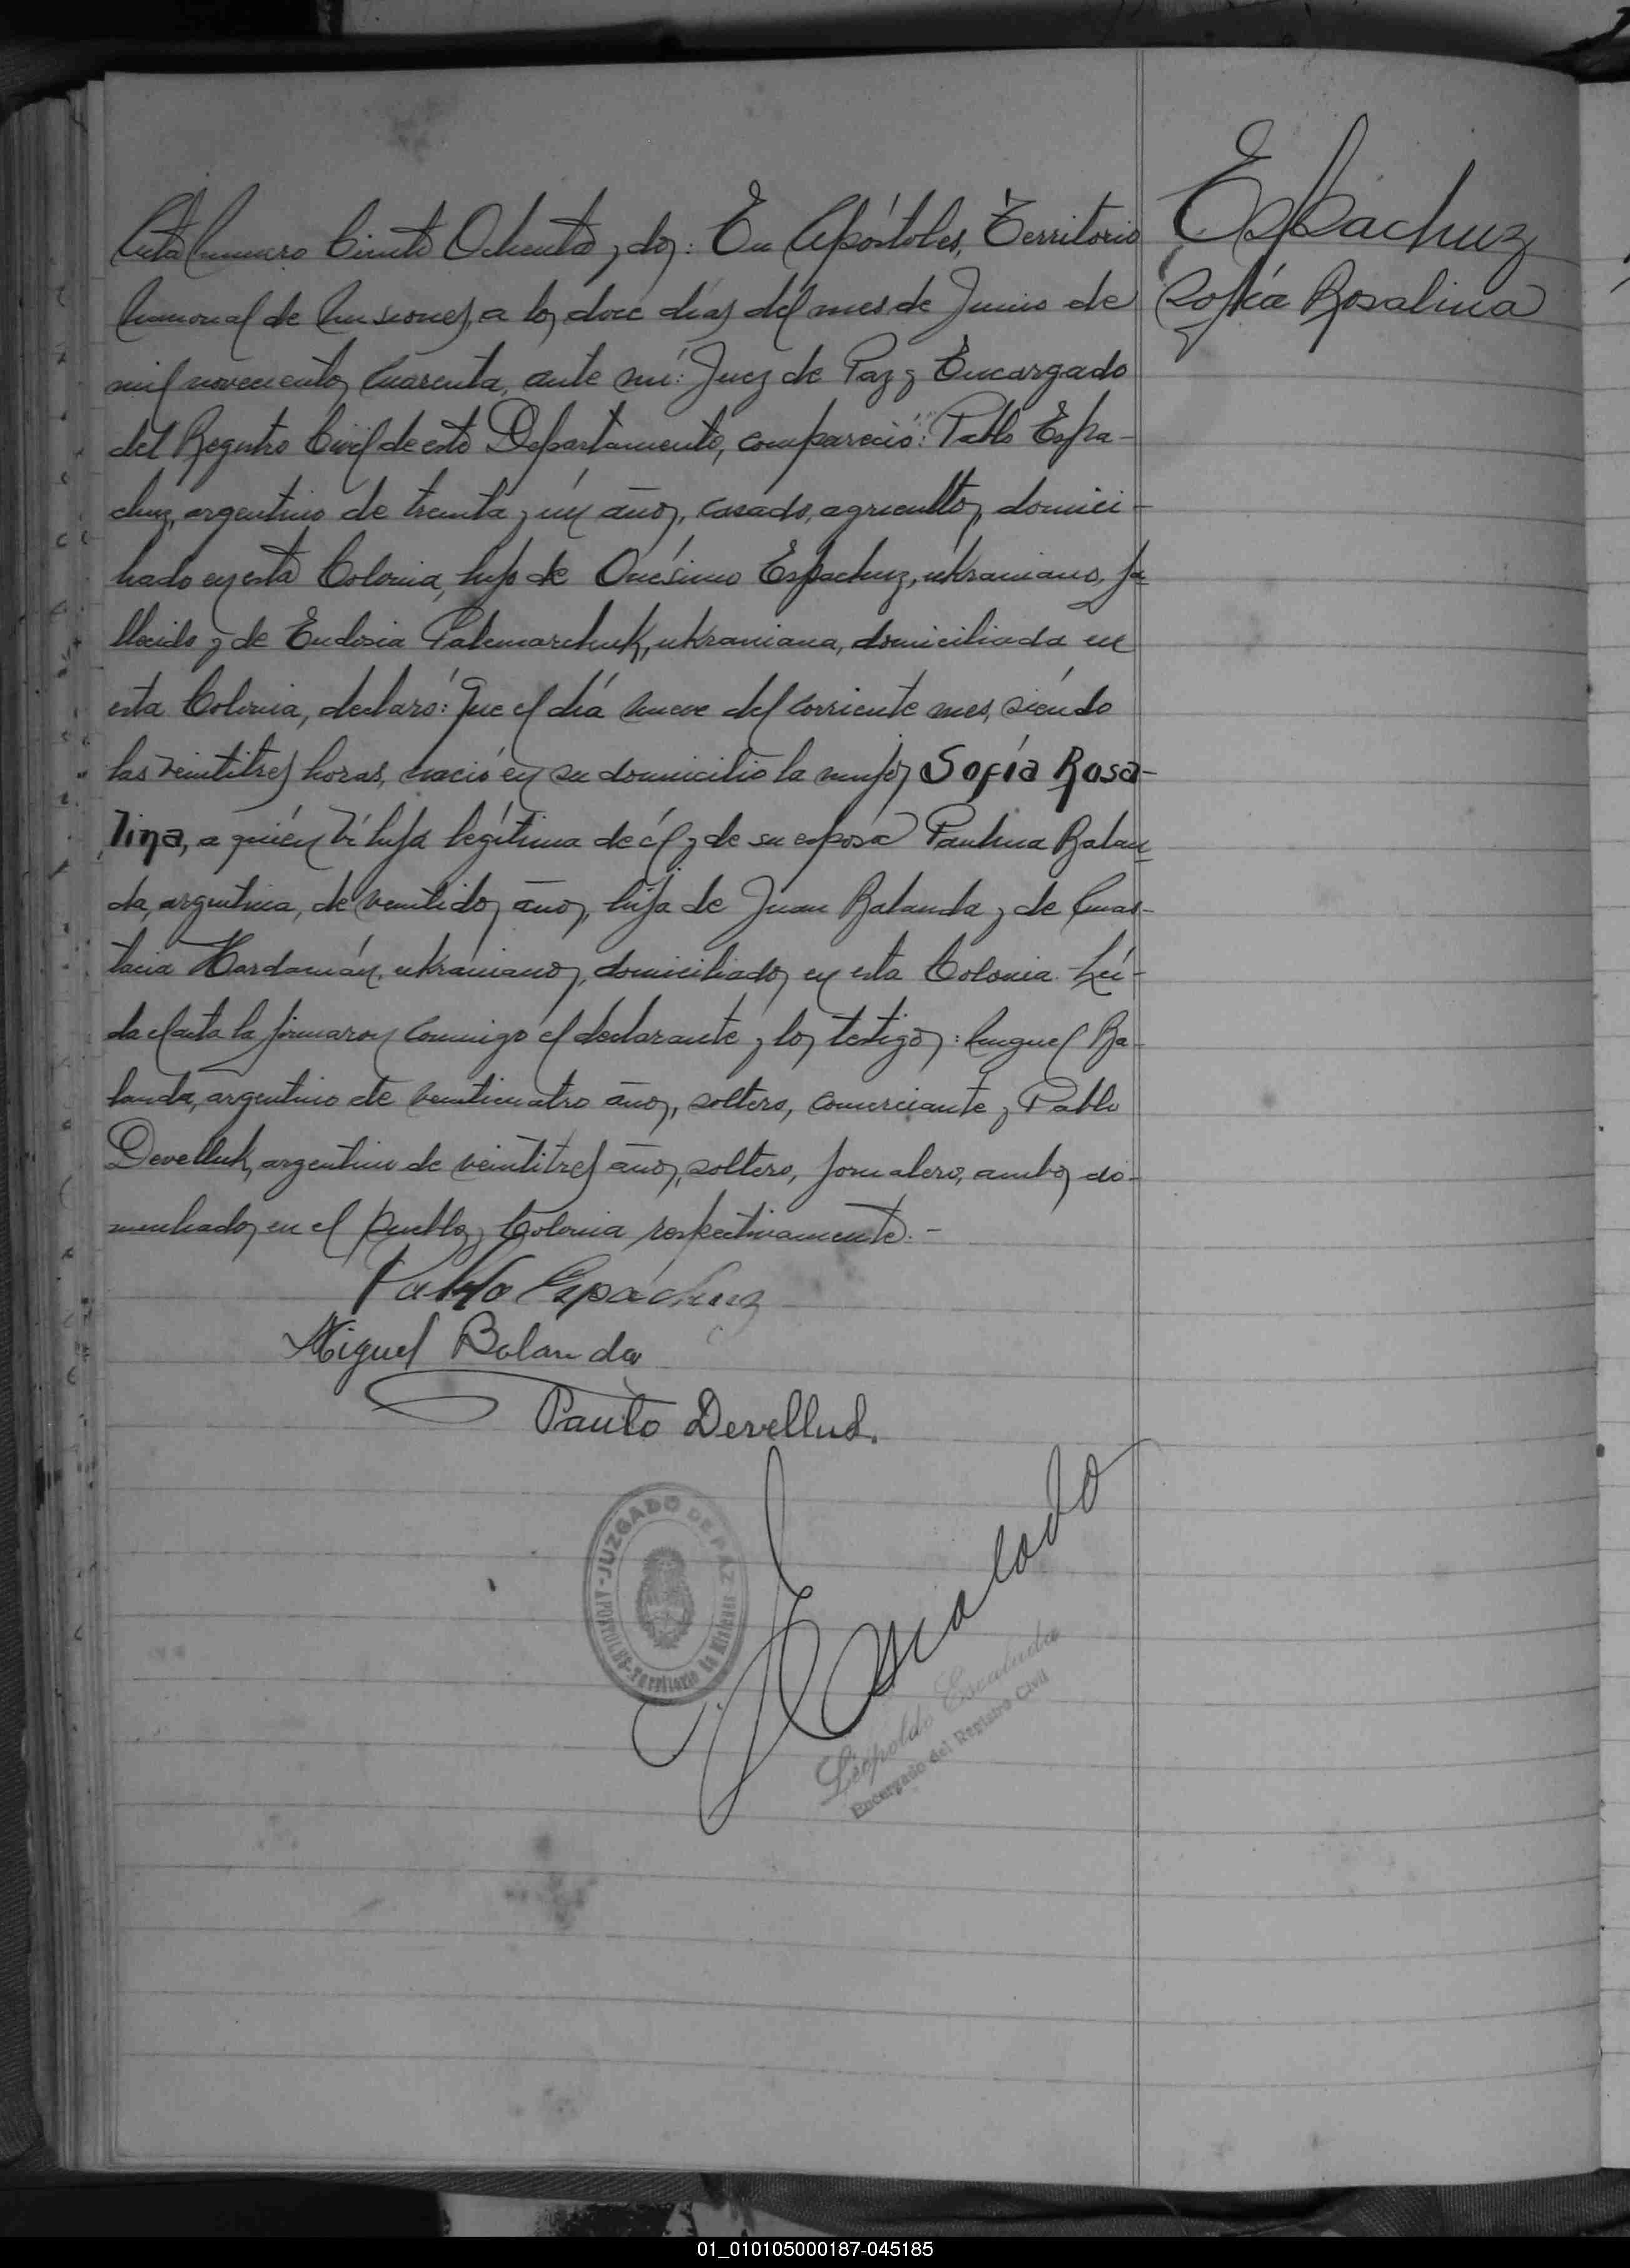 Espachuz
Sofía Rosalina
Acta número Ciento Ochenta y dos: En Apóstoles, Territorio
Nacional de Misiones, a los doce días del mes de Junio de
mil novecientos cuarenta, ante mí: Juez de Paz y Encargado
del Registro Civil de este Departamento, compareció: Pablo Espa-
chuz, argentino de treinta y un años, casado, agricultor, domici-
liado en esta Colonia, hijo de Onésimo Espachuz, ukraniano, fa
llecido y de Eudosia Palemarchuk, ukraniana, domiciliada en
esta Colonia, declaró: Que el día nueve del corriente mes, siendo
las veintitres horas, nació en su domicilio la mujer Sofía Rosa-
lina, a quién ví hija legítima de él y de su esposa Paulina Balan
da, argentina, de veintidos años, hija de Juan Balanda y de Anas-
tacia Hardamán, ukranianos, domiciliados en esta Colonia. Leí-
da el acta la firmaron conmigo el declarante y los testigos: Miguel Ba-
landa, argentino de veinticuatro años, soltero, comerciante y Pablo
Develluk, argentino de veintitres años, soltero, jornalero, ambos do-
miciliados en el Pueblo y Colonia respectivamente.-
Pablo Espáchuz
Miguel Balanda
Paulo Develluk.
JUZGADO DE PAZ
APOSTOLES-Territorio de Misiones
Escalada
Leopoldo Escalada
Encargado del Registro Civil
01_010105000187-045185